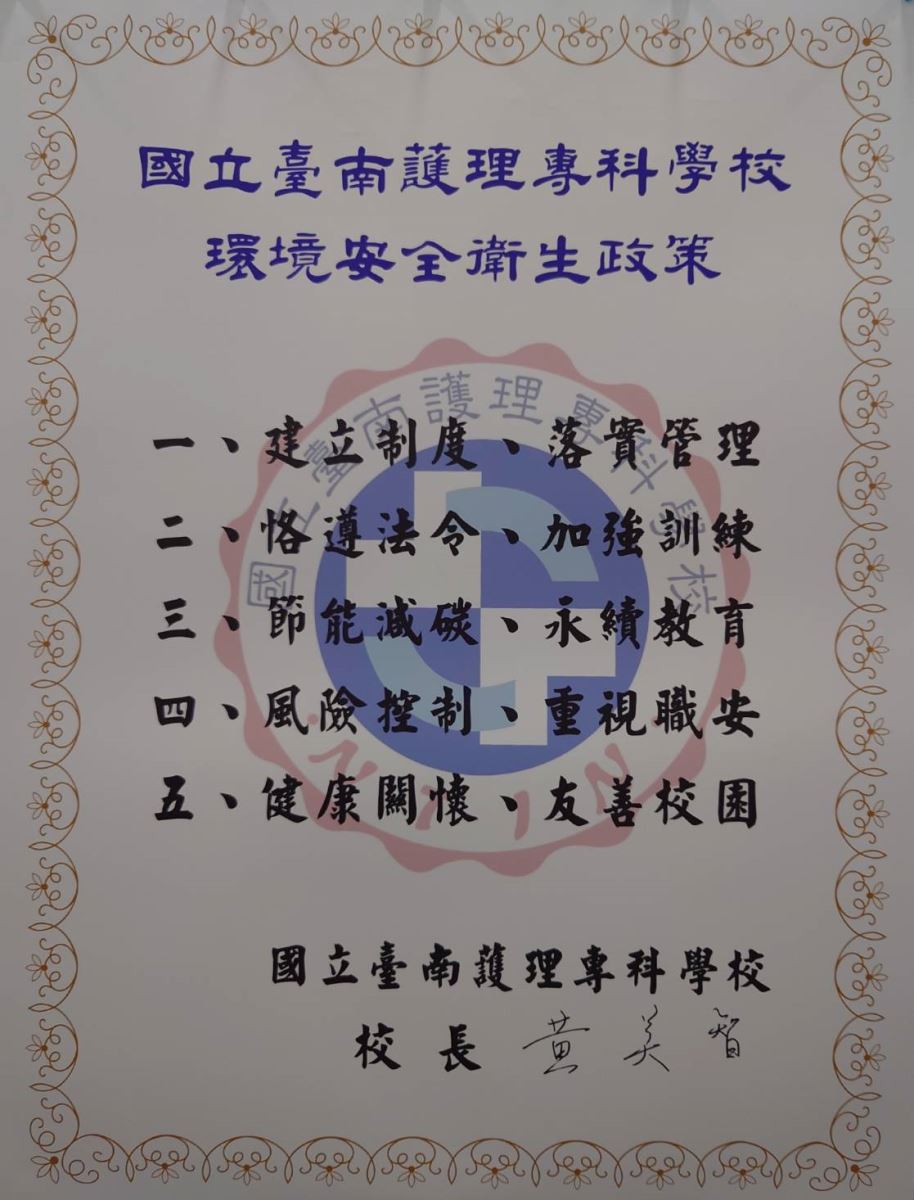 國立臺南護理專科學校
環境安全衛生政策
國立臺南護理專科學校
一、建立制度、落實管理
二、恪遵法令、加強訓練
三、節能減碳、永續教育
四、風險控制、重視職安
五、健康關懷、友善校園
國立臺南護理專科學校
校長 黃美智